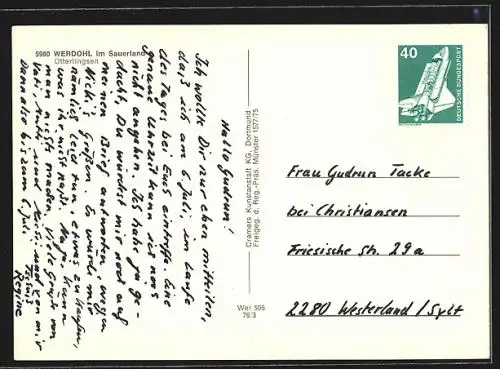 5980 WERDOHL im Sauerland
Ütterlingsen
Hallo Gudrun!
Ich wollte Dir nur eben mitteilen,
daß ich am 6. Juli, im Laufe
des Tages bei Euch eintreffe. Eine
genaue Uhrzeit kann ich noch
nicht angeben. Ich habe ge-
dacht, Du würdest mir noch auf
meinen Brief antworten, wegen
Nicki's Größen. Es würde mir
nämlich leid tun, etwas zu kaufen,
was ihr nicht paßt. Na ja, kann
man nichts machen. Viele Grüße von
Vati, Mutti, und
Dann also bis zum 6. Juli
Regine
Cramers Kunstanstalt KG, Dortmund
Freigeg. d. Reg.-Präs. Münster 1577/75
Wer 506
76/3
40
DEUTSCHE BUNDESPOST
Frau Gudrun Tacke
bei Christiansen
Friesische Str. 29a
2280 Westerland / Sylt